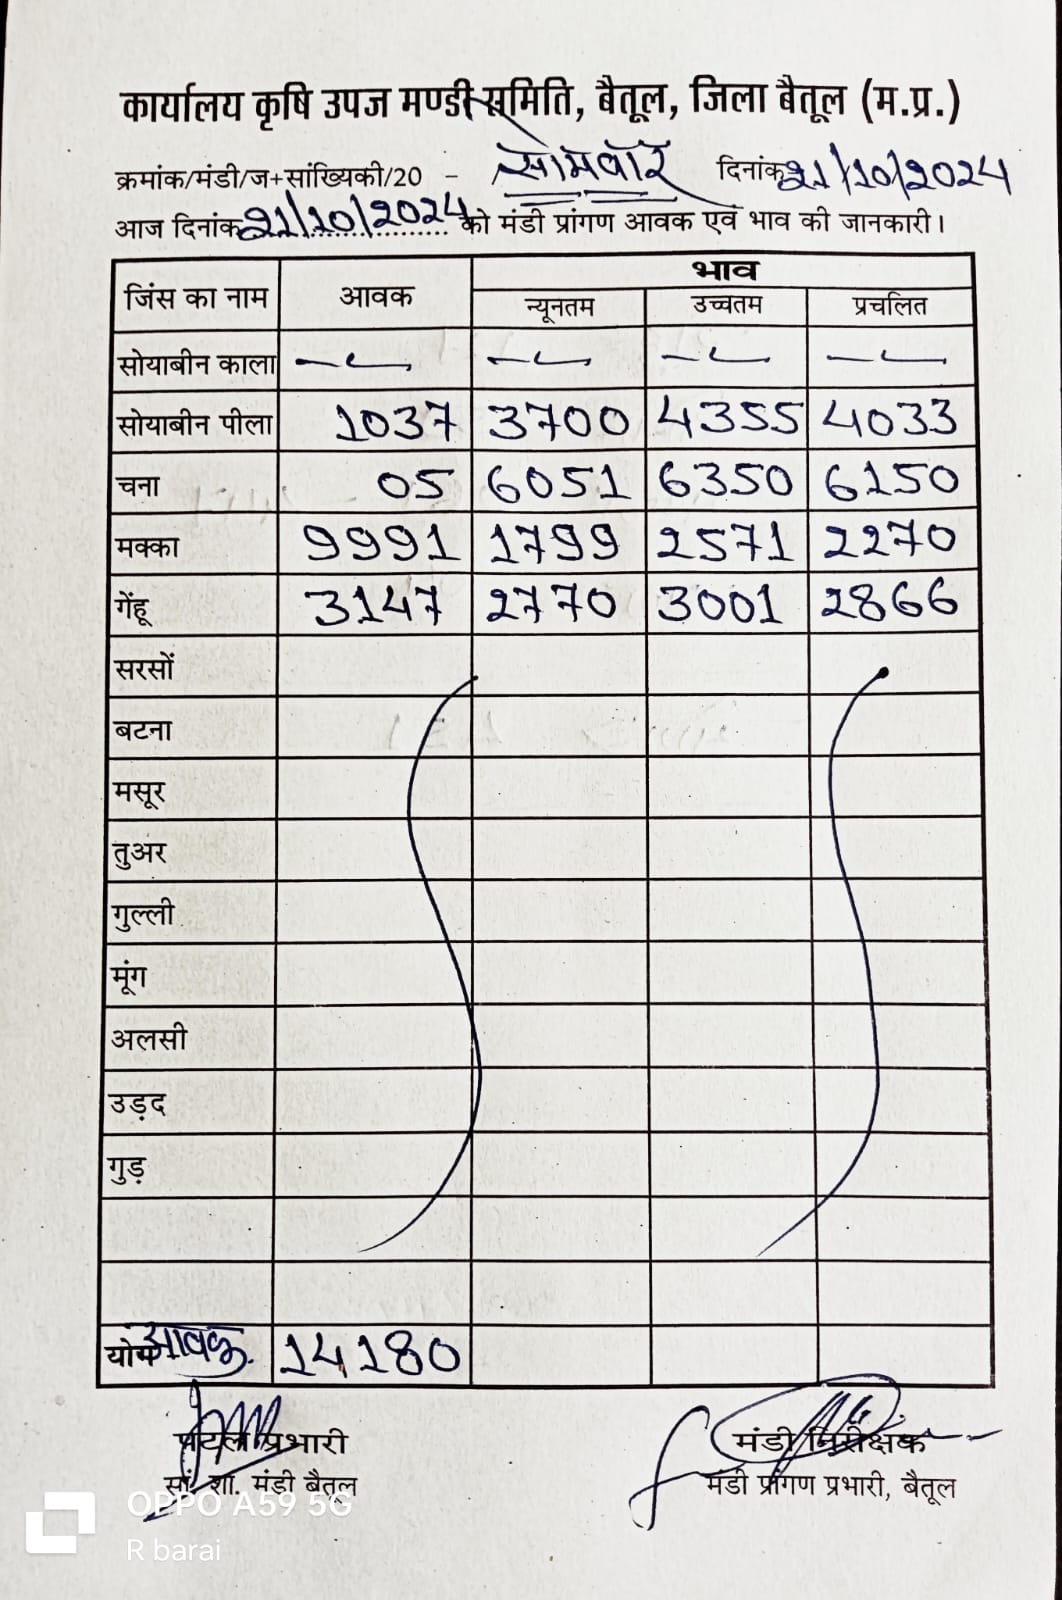 कार्यालय कृषि उपज मण्डी समिति, बैतूल, जिला बैतूल (म.प्र.)
क्रमांक/मंडी/ज+सांख्यिकी/20 - सोमवार दिनांक 21/10/2024
आज दिनांक 21/10/2024 को मंडी प्रांगण आवक एवं भाव की जानकारी।
जिंस का नाम आवक भाव
न्यूनतम उच्चतम प्रचलित
सोयाबीन काला — — — —
सोयाबीन पीला 1037 3700 4355 4033
चना 05 6051 6350 6150
मक्का 9991 1799 2571 2270
गेंहू 3147 2770 3001 2866
सरसों
बटना
मसूर
तुअर
गुल्ली
मूंग
अलसी
उड़द
गुड़
योग आवक. 14180
प्रभारी मंडी निरीक्षक
सां. शा. मंडी बैतूल मंडी प्रांगण प्रभारी, बैतूल
OPPO A59 5G
R barai